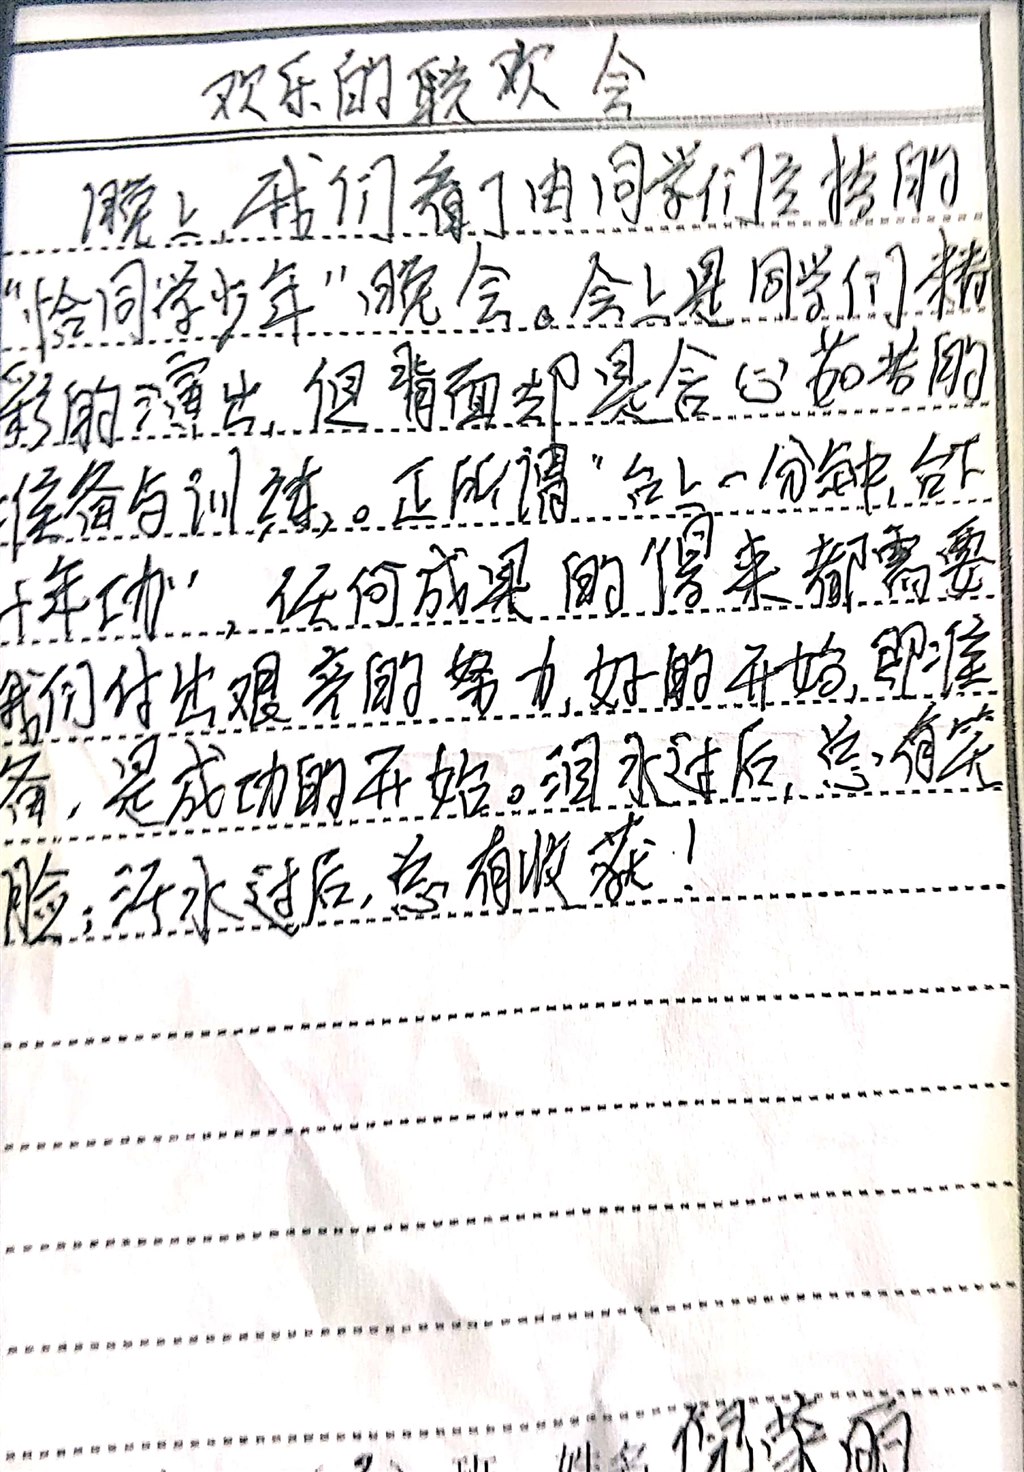 欢乐的联欢会
晚上,我们看了由同学们主持的
“恰同学少年”晚会。会上是同学们精
彩的演出,但背面却是含心茹苦的
准备与训练。正所谓“台上一分钟,台下
十年功”,任何成果的得来都需要
我们付出艰辛的努力,好的开始,即准
备,是成功的开始。泪水过后,总有笑
脸;汗水过后,总有收获!
班 姓名